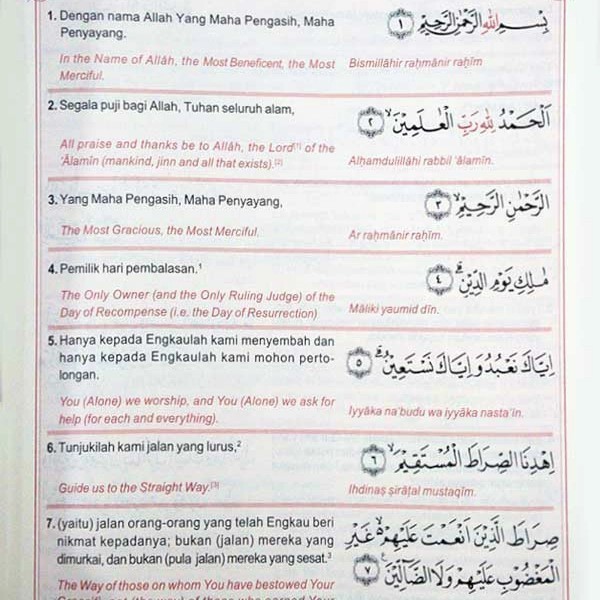 1. Dengan nama Allah Yang Maha Pengasih, Maha
Penyayang.
بِسْمِ اللّٰهِ الرَّحْمٰنِ الرَّحِيْمِ ١
In the Name of Allâh, the Most Beneficent, the Most
Merciful.
Bismillāhir raḥmānir raḥīm
2. Segala puji bagi Allah, Tuhan seluruh alam,
اَلْحَمْدُ لِلّٰهِ رَبِّ الْعٰلَمِيْنَۙ ٢
All praise and thanks be to Allâh, the Lord[1] of the
'Âlamîn (mankind, jinn and all that exists).[2]
Alḥamdulillāhi rabbil 'ālamīn.
3. Yang Maha Pengasih, Maha Penyayang,
الرَّحْمٰنِ الرَّحِيْمِۙ ٣
The Most Gracious, the Most Merciful.
Ar raḥmānir raḥīm.
4. Pemilik hari pembalasan.1
مٰلِكِ يَوْمِ الدِّيْنِۗ ٤
The Only Owner (and the Only Ruling Judge) of the
Day of Recompense (i.e. the Day of Resurrection)
Māliki yaumid dīn.
5. Hanya kepada Engkaulah kami menyembah dan
hanya kepada Engkaulah kami mohon perto-
longan.
اِيَّاكَ نَعْبُدُ وَاِيَّاكَ نَسْتَعِيْنُۗ ٥
You (Alone) we worship, and You (Alone) we ask for
help (for each and everything).
Iyyāka na'budu wa iyyāka nasta'īn.
6. Tunjukilah kami jalan yang lurus,2
اِهْدِنَا الصِّرَاطَ الْمُسْتَقِيْمَۙ ٦
Guide us to the Straight Way.[3]
Ihdinaṣ ṣirāṭal mustaqīm.
7. (yaitu) jalan orang-orang yang telah Engkau beri
nikmat kepadanya; bukan (jalan) mereka yang
dimurkai, dan bukan (pula jalan) mereka yang sesat.3
صِرَاطَ الَّذِيْنَ اَنْعَمْتَ عَلَيْهِمْ ەۙ غَيْرِ
الْمَغْضُوْبِ عَلَيْهِمْ وَلَا الضَّاۤلِّيْنَࣖ ٧
The Way of those on whom You have bestowed Your